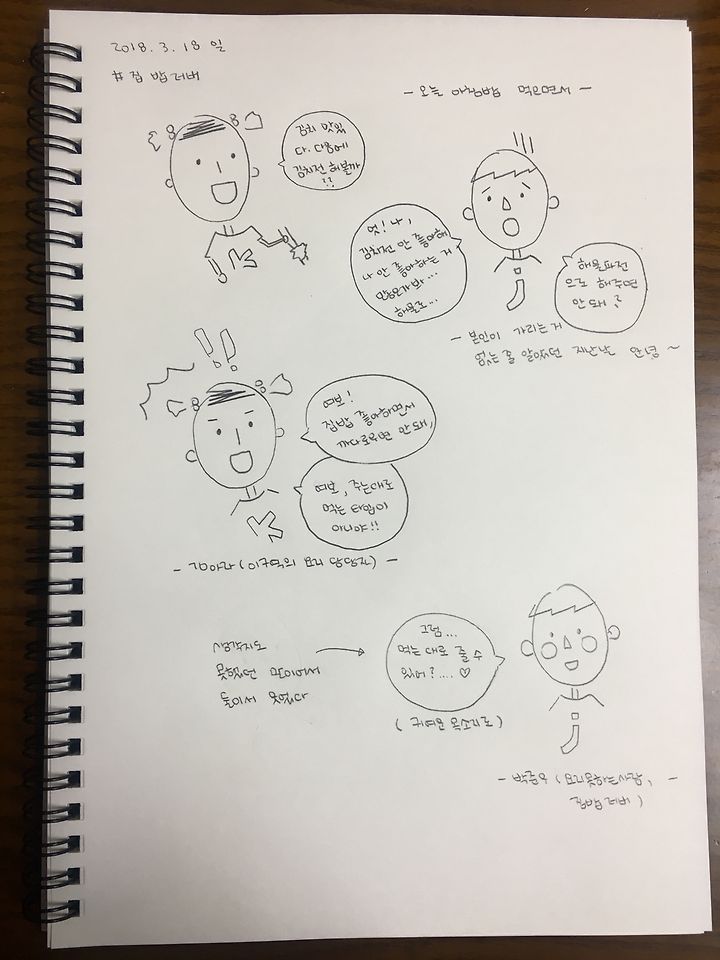 2018. 3. 18 일
# 집 밥 레벨
- 오늘 아침밥 먹으면서 -
김치 맛있
다. 다음에
김치전 해볼까
!!
엇! 나,
김치전 안 좋아해
나 안 좋아하는 거
많은가봐...
해물로...
해물파전
으로 해주면
안 돼?
- 본인이 가리는 거
없는 줄 알았던 지난날 안녕 ~
여보!
집밥 좋아하면서
까다로우면 안 돼,
여보, 주는대로
먹는 타입이
아니야!!
- 기아라 (이구역의 요리 담당자) -
시키지도
못했던 말이어서
둘이서 웃었다
그럼...
먹는 대로 줄 수
있어?.... ♡
( 귀여운 목소리로 )
- 박종우 ( 요리못하는사람, -
집밥 레벨 )